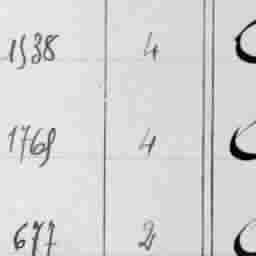 1938 4
1769 4
677 2